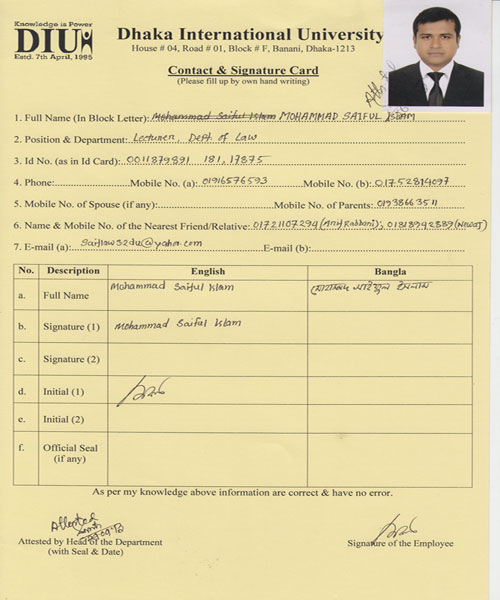 Knowledge is Power
DIU
Estd. 7th April, 1995
Dhaka International University
House # 04, Road # 01, Block # F, Banani, Dhaka-1213
Contact & Signature Card
(Please fill up by own hand writing)
1. Full Name (In Block Letter): Mohammad Saiful Islam MOHAMMAD SAIFUL ISLAM
2. Position & Department: Lecturer, Dept of Law
3. Id No. (as in Id Card): 0011879891 181, 17875
4. Phone: Mobile No. (a): 01916576593 Mobile No. (b): 01752814097
5. Mobile No. of Spouse (if any): Mobile No. of Parents: 01938663511
6. Name & Mobile No. of the Nearest Friend/Relative: 01721107294 (Arif Rabbani); 01818942889 (Nawaj)
7. E-mail (a): Saiflaw52du@yahoo.com E-mail (b):
No. Description English Bangla
a. Full Name Mohammad Saiful Islam মোহাম্মদ সাইফুল ইসলাম
b. Signature (1) Mohammad Saiful Islam
c. Signature (2)
d. Initial (1)
e. Initial (2)
f. Official Seal
(if any)
As per my knowledge above information are correct & have no error.
Attested
Attested by Head of the Department
(with Seal & Date)
Signature of the Employee